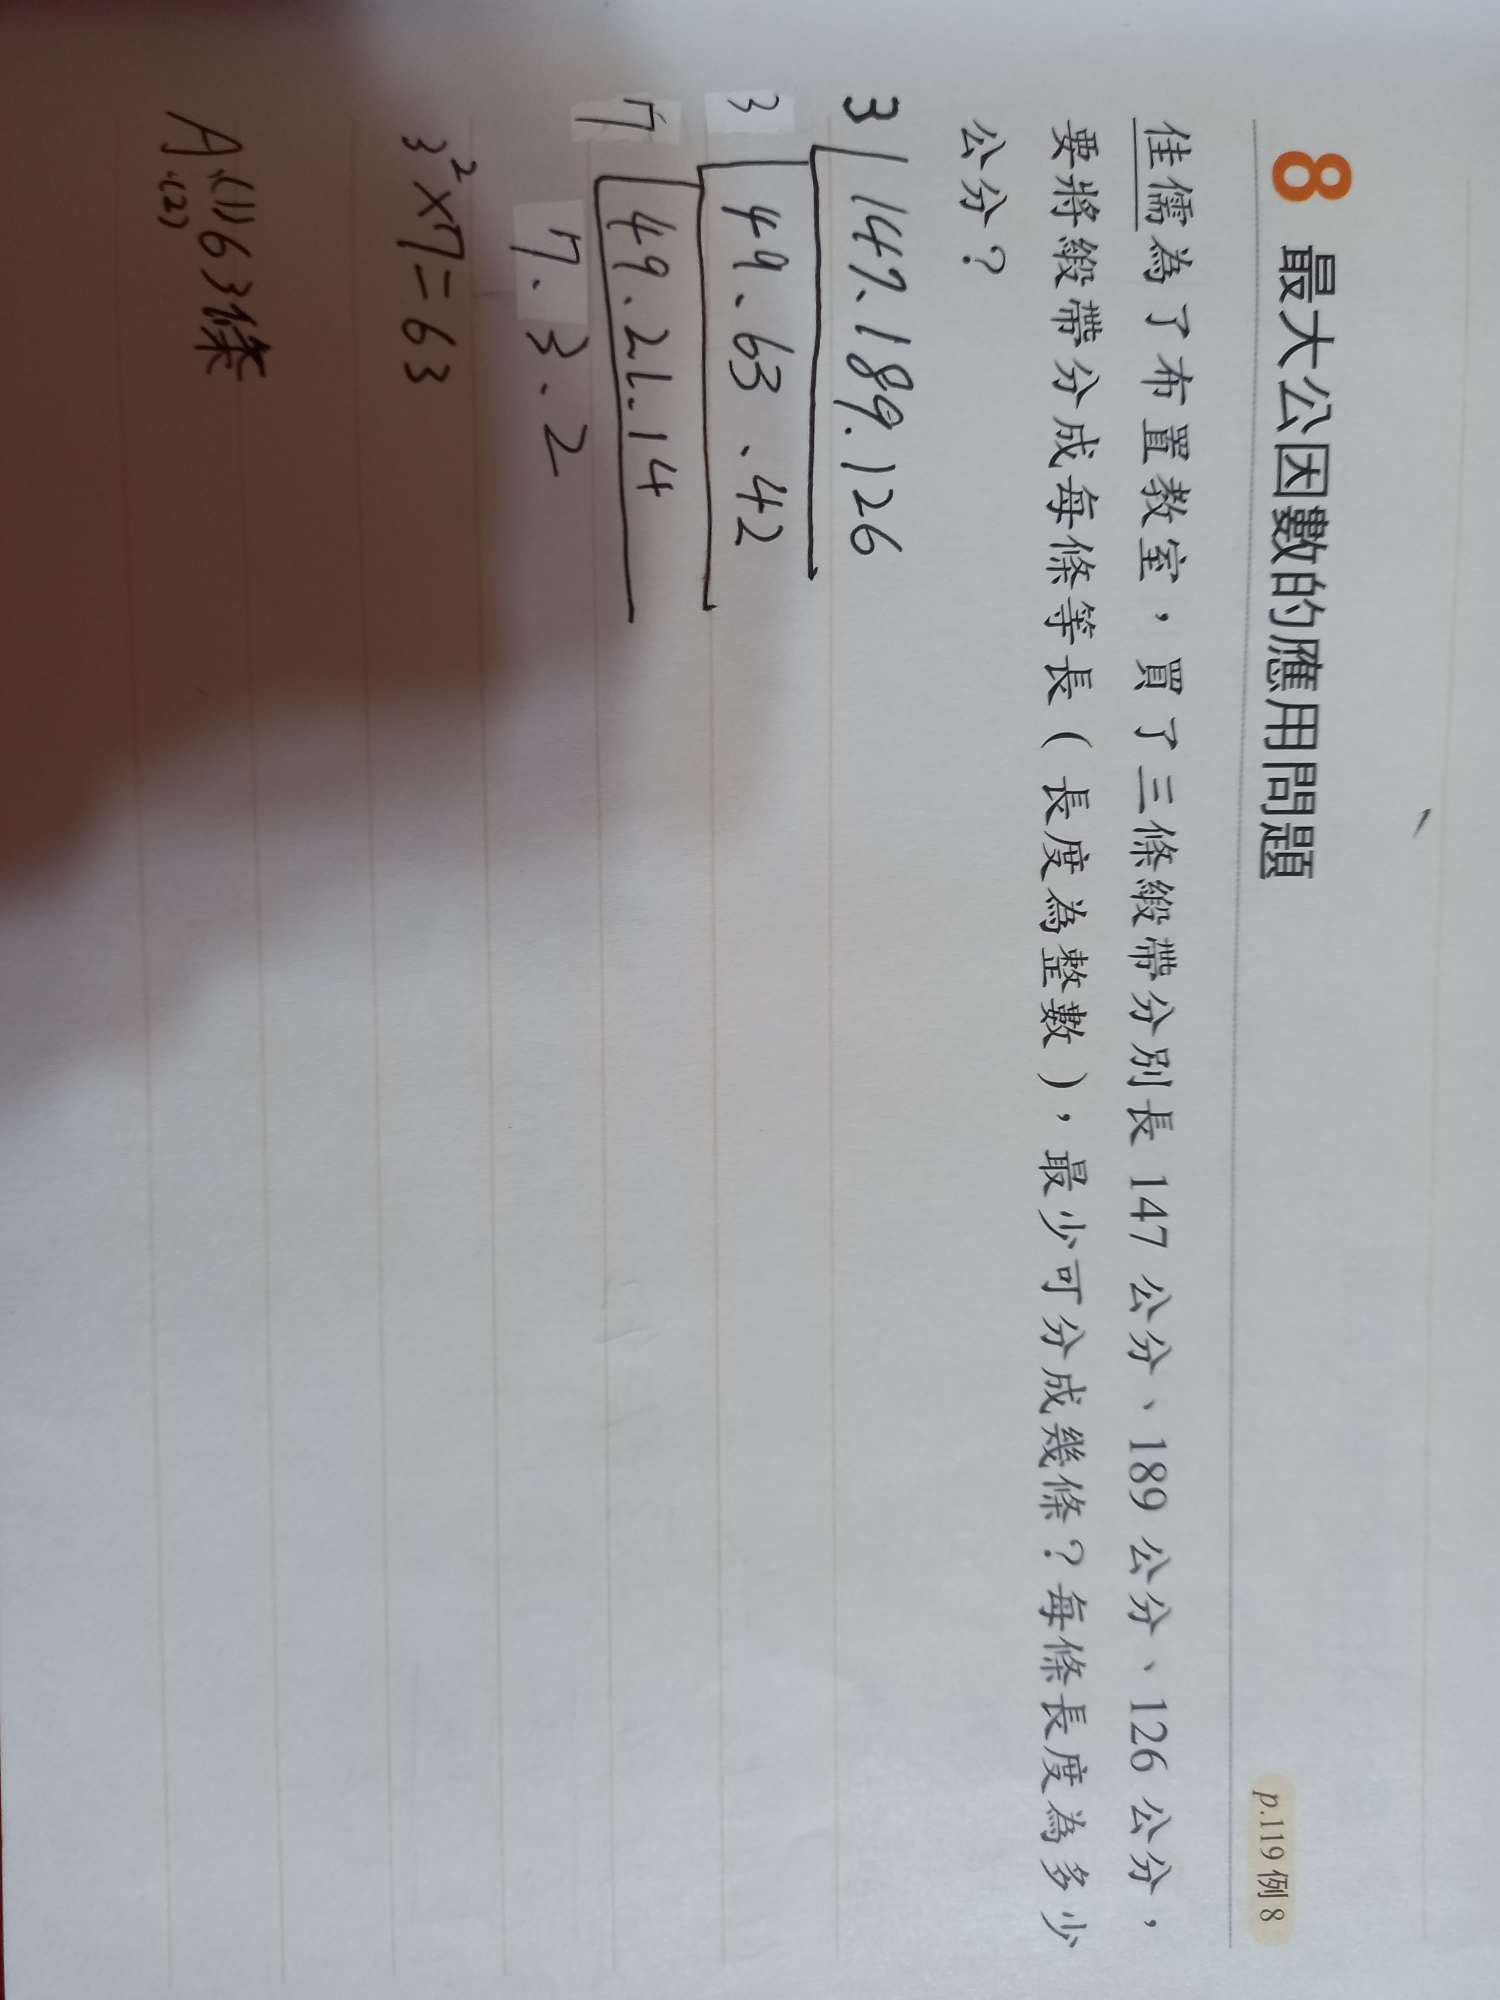 8 最大公因數的應用問題
p.119 例 8
佳儒為了布置教室，買了三條緞帶分別長 147 公分、189 公分、126 公分，
要將緞帶分成每條等長（長度為整數），最少可分成幾條？每條長度為多少
公分？
3 147.189.126
3 49、63、42
7 49.21.14
7.3.2
3²×7=63
A:(1)63條
(2)